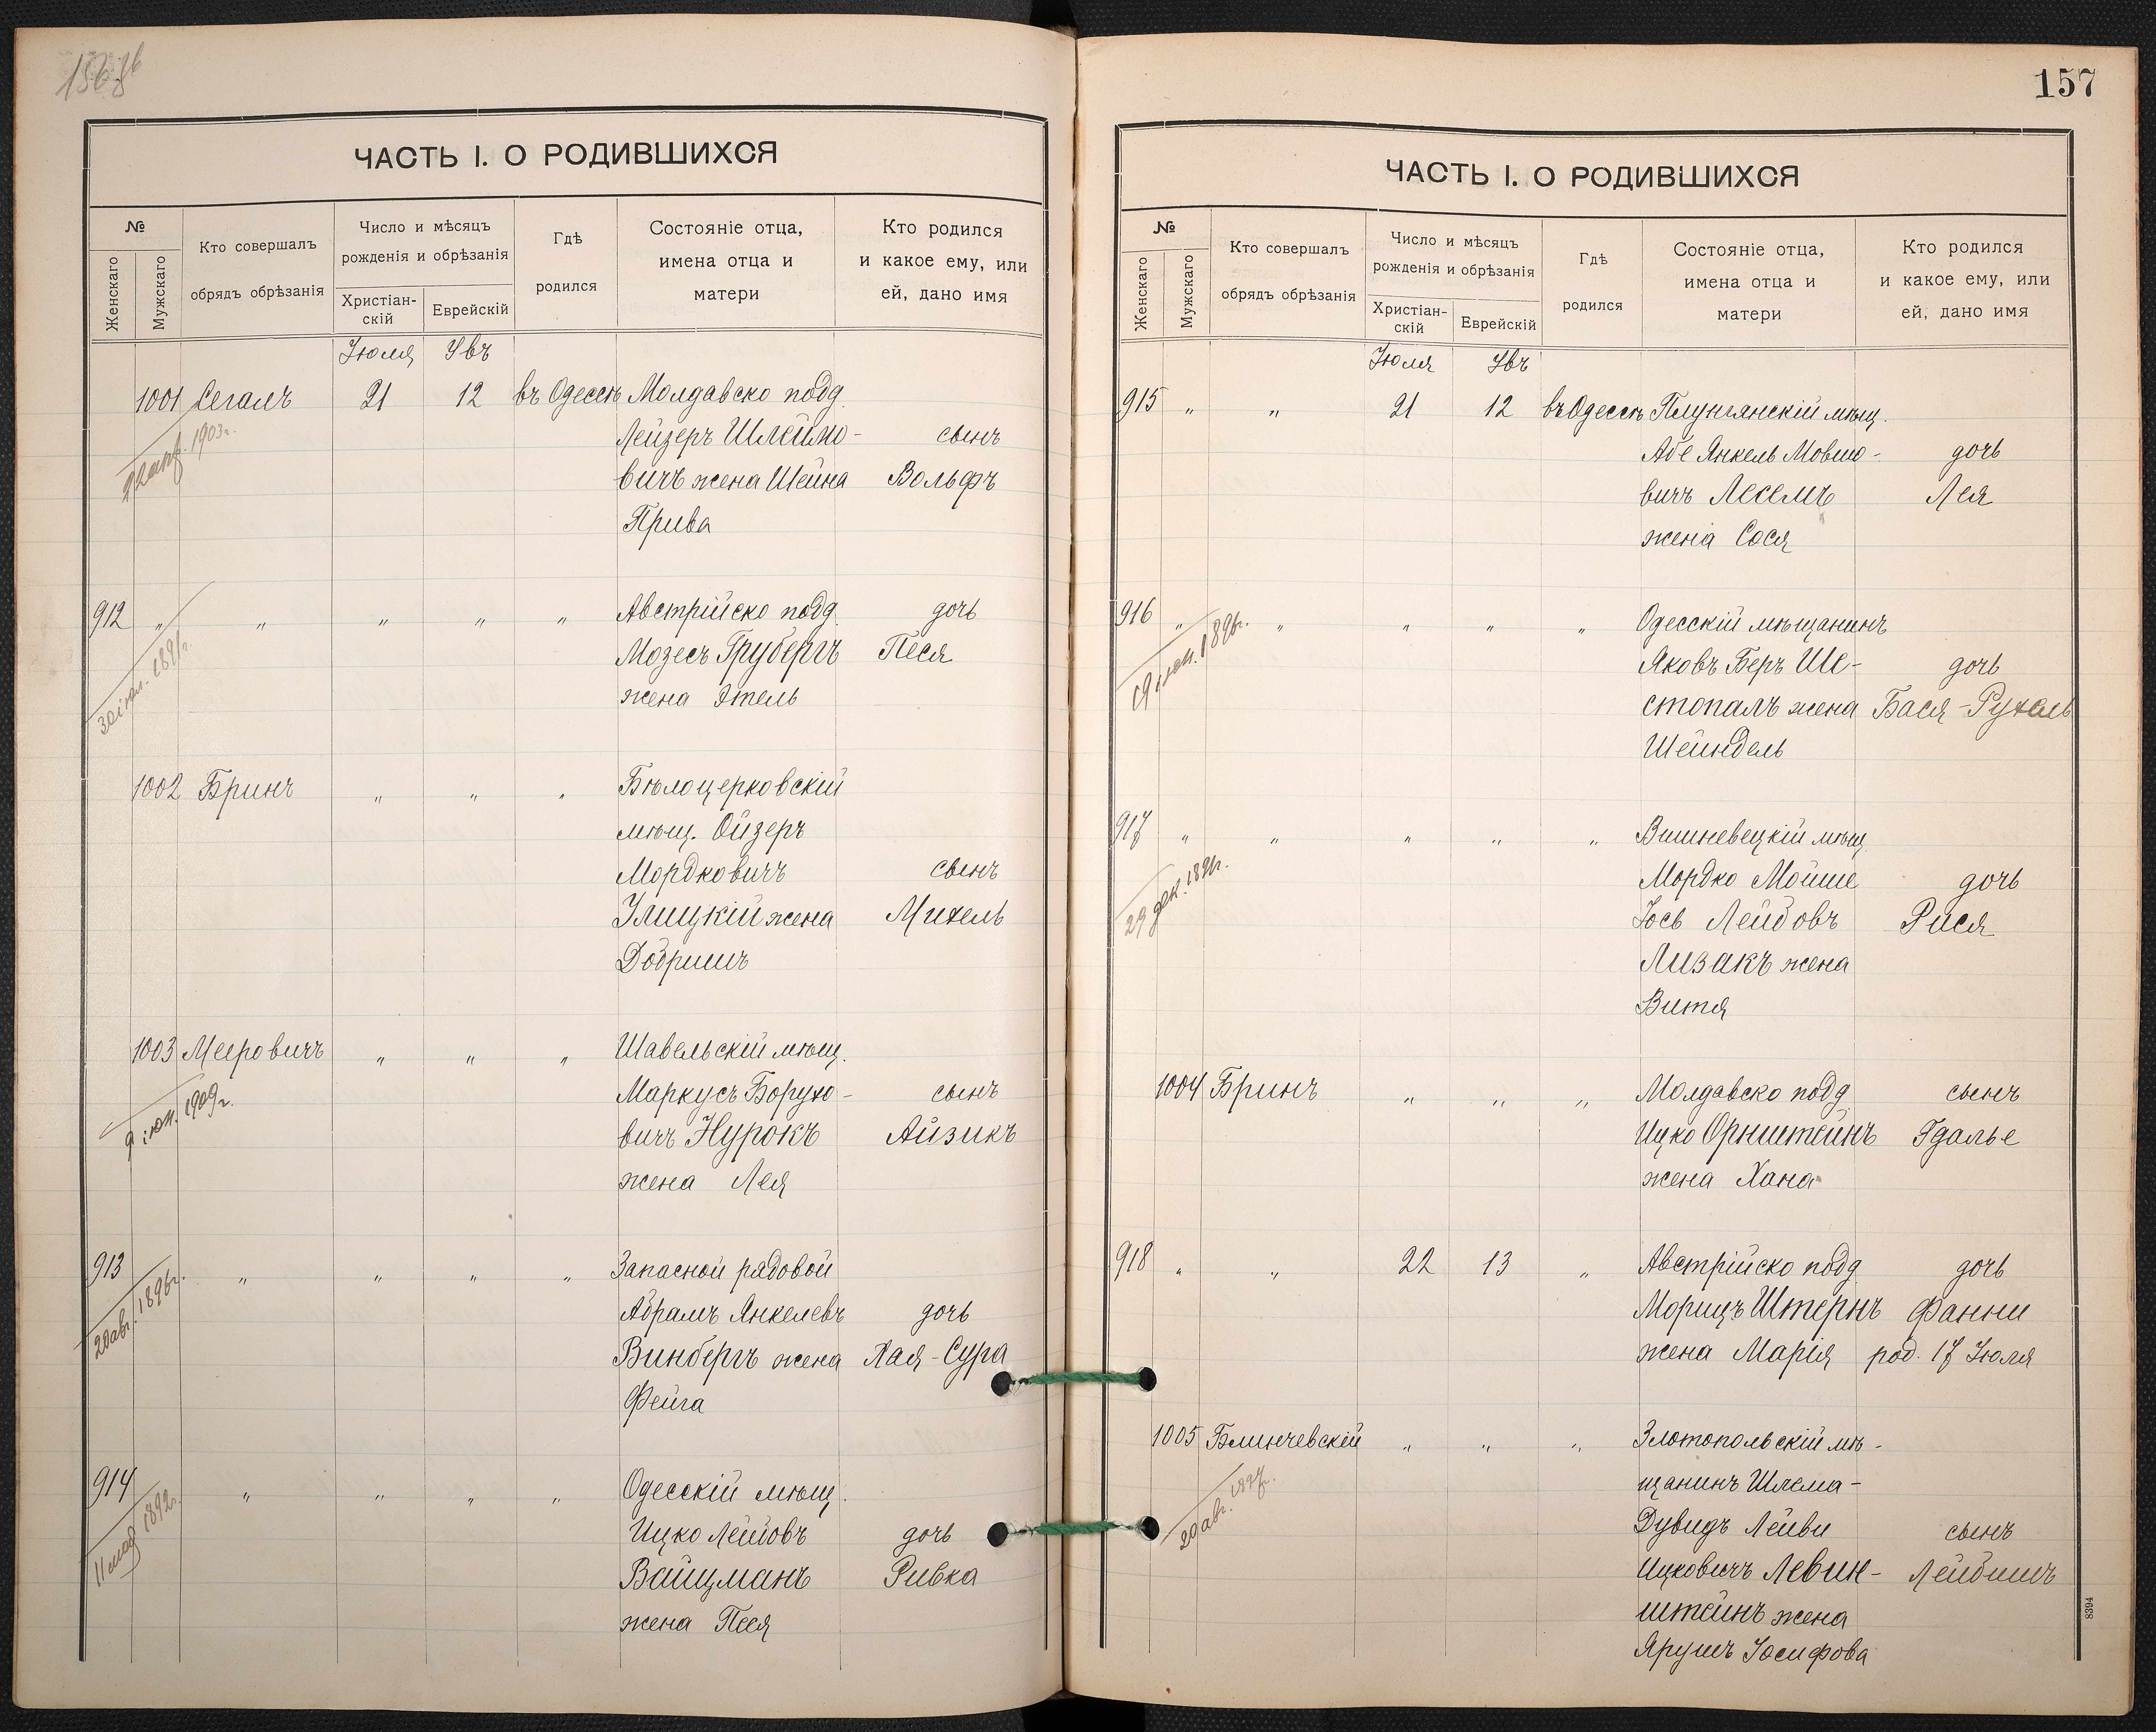 ЧАСТЬ I. О РОДИВШИХСЯ
№
Женскаго
Мужскаго
Кто совершалъ
обрядъ обрѣзанія
Число и мѣсяцъ
рожденія и обрѣзанія
Христіан-
скій
Еврейскій
Гдѣ
родился
Состояніе отца,
имена отца и
матери
Кто родился
и какое ему, или
ей, дано имя
Іюля Увъ
1001 Сегалъ 21 12 въ Одессѣ Молдавско подд.
Лейзеръ Шлеймо- сынъ
вичъ жена Шейна Вольфъ
Прива
1903г.
912 „ „ „ „ „ Австрійско подд. дочь
Мозесъ Грубергъ Песя
жена Этель
30 іюл. 1891г.
1002 Бринъ „ „ „ Бѣлоцерковскій
мѣщ. Ойзеръ
Мордковичъ сынъ
Улицкій жена Михель
Добришъ
1003 Мееровичъ „ „ „ Шавельскій мѣщ.
Маркусъ Борухо- сынъ
вичъ Нурокъ Айзикъ
жена Лея
9 іюн. 1909г.
913 „ „ „ „ Запасной рядовой
Абрамъ Янкелевъ дочь
Винбергъ жена Хая-Сура
Фейга
20 авг. 1896г.
914 „ „ „ „ Одесскій мѣщ.
Ицко Лейбовъ дочь
Вайцманъ Ривка
жена Песя
11 мая 1892г.
157
ЧАСТЬ I. О РОДИВШИХСЯ
№
Женскаго
Мужскаго
Кто совершалъ
обрядъ обрѣзанія
Число и мѣсяцъ
рожденія и обрѣзанія
Христіан-
скій
Еврейскій
Гдѣ
родился
Состояніе отца,
имена отца и
матери
Кто родился
и какое ему, или
ей, дано имя
Іюля Увъ
915 „ „ 21 12 въ Одессѣ Плунгянскій мѣщ.
Абе Янкель Мовшо- дочь
вичъ Лесемъ Лея
жена Сося
916 „ „ „ „ „ Одесскій мѣщанинъ
Яковъ Беръ Ше- дочь
стопалъ жена Бася-Рухель
Шейндель
1896г.
917 „ „ „ „ „ Вишневецкій мѣщ.
Мордко Мойше дочь
Іось Лейбовъ Рися
Лизакъ жена
Витя
29 дек.
1004 Бринъ „ „ „ Молдавско подд. сынъ
Ицко Орнштейнъ Гдалье
жена Хана
918 „ „ 22 13 „ Австрійско подд. дочь
Морицъ Штернъ Фанни
жена Марія род. 17 Іюля
1005 Блинчевскій „ „ „ Злотопольскій мѣ-
щанинъ Шлема-
Дувидъ Лейви сынъ
Ицковичъ Левин- Лейбишъ
штейнъ жена
Ярушъ Іосифова
20 авг. 1897г.
8394